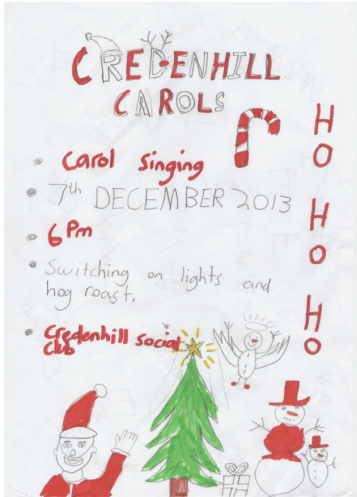 CREDENHILL
CAROLS
Carol Singing
7th DECEMBER 2013
6Pm
Switching on lights and
hog roast.
Credenhill Social
Club
HO
HO
HO